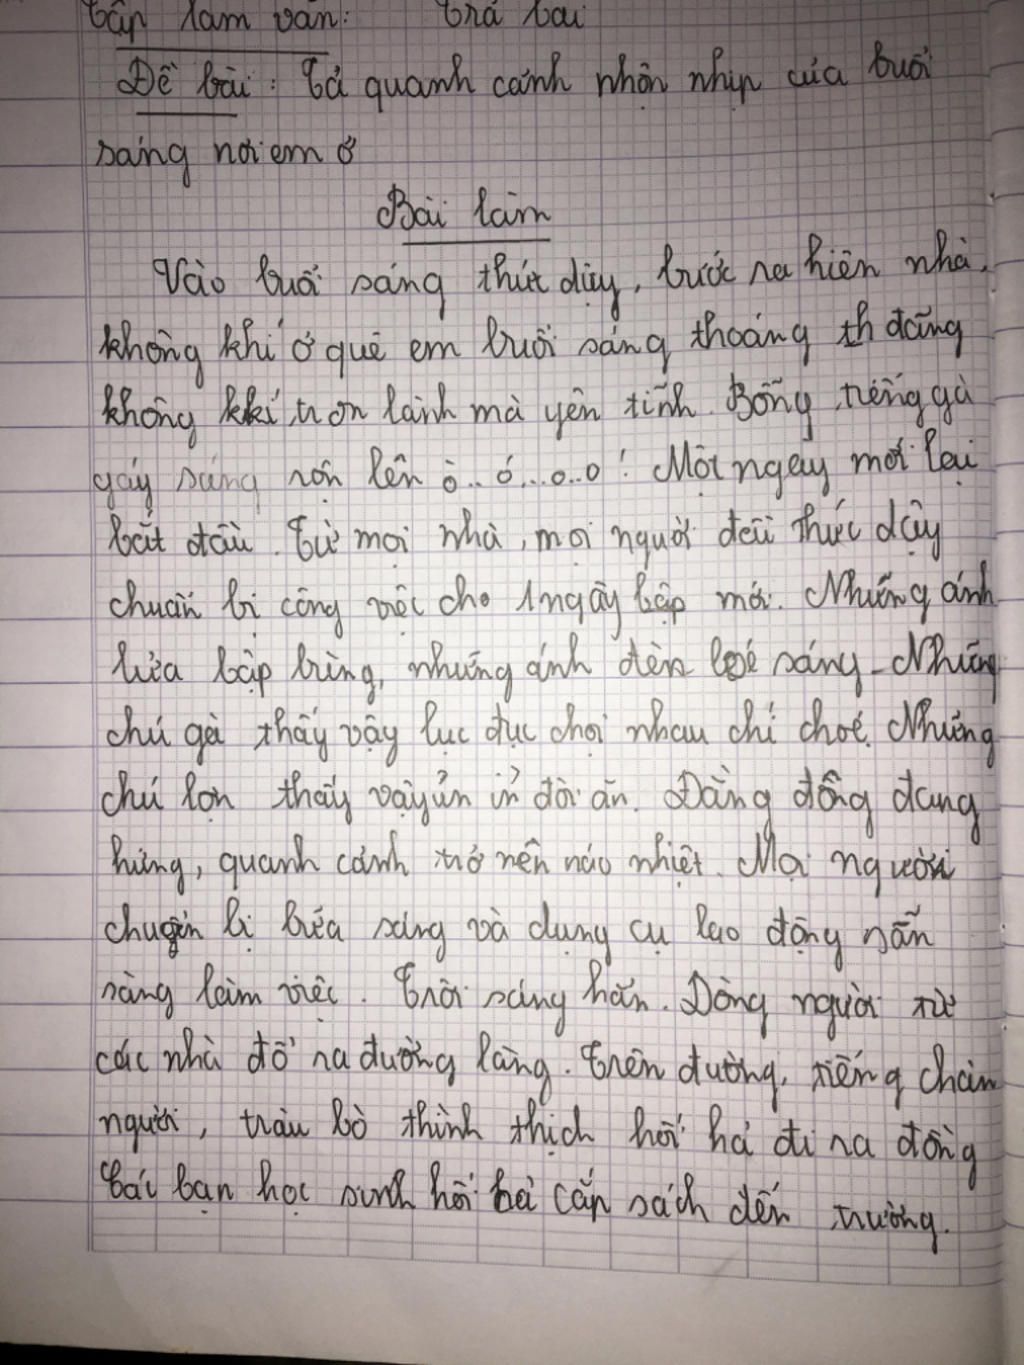 Tập làm văn: trả bài
Đề bài: Tả quanh cảnh nhộn nhịp của buổi
sáng nơi em ở
Bài làm
Vào buổi sáng thức dậy, bước ra hiên nhà,
không khí ở quê em buổi sáng thoáng th đãng
không khí trơn lành mà yên tĩnh. Bỗng tiếng gà
gáy sáng rộn lên ò.. ó...o..o! Một ngày mới lại
bắt đầu. Từ mọi nhà, mọi người đều thức dậy
chuẩn bị công việc cho 1 ngày bập mới. Những ánh
lửa bập bùng, những ánh đèn loé sáng. Những
chú gà thấy vậy lục đục chọi nhau chí choé. Những
chú lợn thấy vậy ủn ỉn đòi ăn. Đằng đông đang
hửng, quanh cảnh trở nên náo nhiệt. Mọi người
chuẩn bị bữa sáng và dụng cụ lao động sẵn
sàng làm việc. Trời sáng hẳn. Dòng người từ
các nhà đổ ra đường làng. Trên đường, tiếng chân
người, trâu bò thình thịch hối hả đi ra đồng
Các bạn học sinh hối hả cắp sách đến trường.